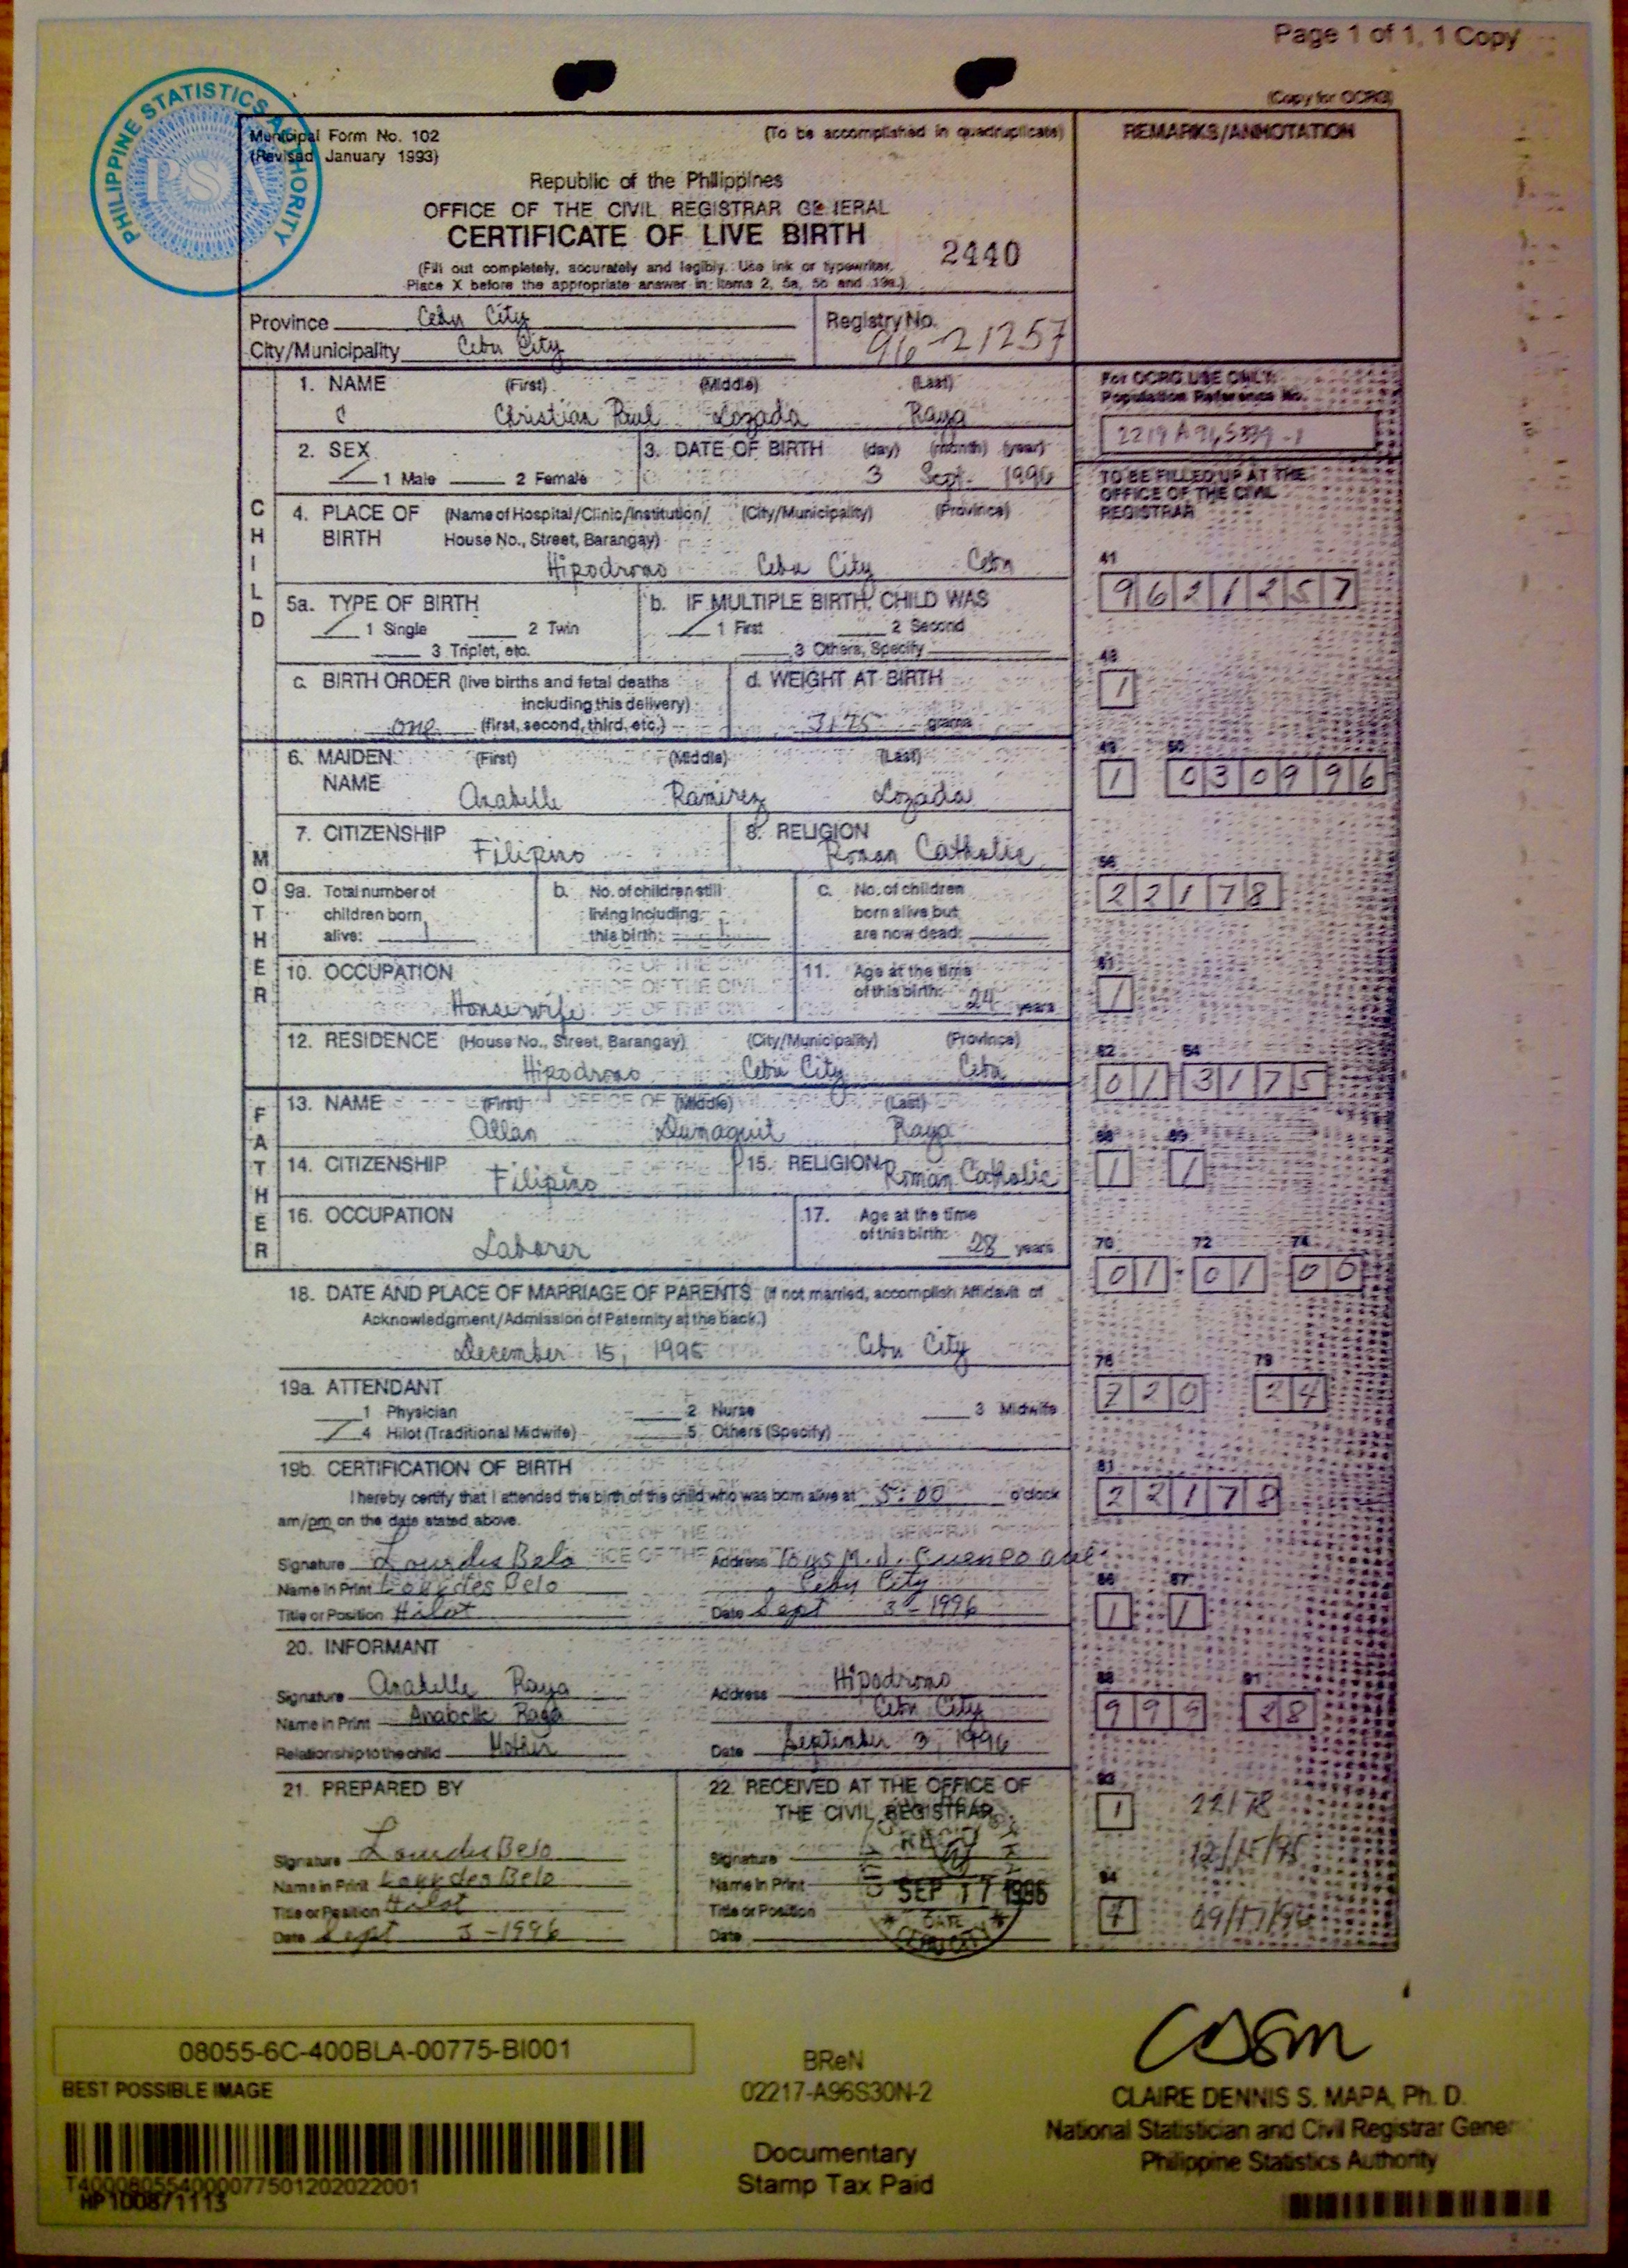 Page 1 of 1, 1 Copy
(Copy for OCRG)
PHILIPPINE STATISTICS AUTHORITY
PSA
Municipal Form No. 102
(To be accomplished in quadruplicate)
REMARKS/ANNOTATION
(Revised January 1993)
Republic of the Philippines
OFFICE OF THE CIVIL REGISTRAR GENERAL
CERTIFICATE OF LIVE BIRTH
2440
(Fill out completely, accurately and legibly. Use ink or typewriter.
Place X before the appropriate answer in items 2, 5a, 5b and 19a.)
Province Cebu City
Registry No.
City/Municipality Cebu City
96-21257
CHILD
1. NAME (First) (Middle) (Last)
C Christian Paul Lozada Raya
For OCRG USE ONLY:
Population Reference No.
2. SEX
/ 1 Male 2 Female
3. DATE OF BIRTH (day) (month) (year)
3 Sept. 1996
TO BE FILLED UP AT THE
OFFICE OF THE CIVIL
REGISTRAR
4. PLACE OF BIRTH (Name of Hospital/Clinic/Institution/ (City/Municipality) (Province)
House No., Street, Barangay)
Hipodromo Cebu City Cebu
41
9621257
5a. TYPE OF BIRTH
/ 1 Single 2 Twin
3 Triplet, etc.
b. IF MULTIPLE BIRTH, CHILD WAS
/ 1 First 2 Second
3 Others, Specify
48
1
c. BIRTH ORDER (live births and fetal deaths
including this delivery)
one (first, second, third, etc.)
d. WEIGHT AT BIRTH
3175 grams
49 50
1 030996
MOTHER
6. MAIDEN NAME (First) (Middle) (Last)
Anabelle Ramirez Lozada
7. CITIZENSHIP
Filipino
8. RELIGION
Roman Catholic
56
22178
9a. Total number of
children born
alive: 1
b. No. of children still
living including
this birth: 1
c. No. of children
born alive but
are now dead:
61
1
10. OCCUPATION
Housewife
11. Age at the time
of this birth: 24 years
12. RESIDENCE (House No., Street, Barangay) (City/Municipality) (Province)
Hipodromo Cebu City Cebu
62 64
01 3175
FATHER
13. NAME (First) (Middle) (Last)
Allan Dumaguit Raya
68 69
1 1
14. CITIZENSHIP
Filipino
15. RELIGION
Roman Catholic
16. OCCUPATION
Laborer
17. Age at the time
of this birth: 28 years
70 72 74
01 01 00
18. DATE AND PLACE OF MARRIAGE OF PARENTS (If not married, accomplish Affidavit of
Acknowledgment/Admission of Paternity at the back.)
December 15, 1995 Cebu City
76 79
220 24
19a. ATTENDANT
1 Physician 2 Nurse 3 Midwife
/ 4 Hilot (Traditional Midwife) 5 Others (Specify)
19b. CERTIFICATION OF BIRTH
I hereby certify that I attended the birth of the child who was born alive at 5:00 o'clock
am/pm on the date stated above.
81
22178
Signature Lourdes Belo
Address M.J. Cuenco ave.
Name in Print Lourdes Belo
Cebu City
Title or Position Hilot
Date Sept 3-1996
86 87
1 1
20. INFORMANT
Signature Anabelle Raya
Address Hipodromo
Name in Print Anabelle Raya
Cebu City
Relationship to the child Mother
Date September 3, 1996
88 91
999 28
21. PREPARED BY
Signature Lourdes Belo
Name in Print Lourdes Belo
Title or Position Hilot
Date Sept 3-1996
22. RECEIVED AT THE OFFICE OF
THE CIVIL REGISTRAR
Signature
Name in Print
SEP 17 1996
Title or Position
DATE
Date
93
1 22178
12/15/95
94
4 09/17/96
08055-6C-400BLA-00775-BI001
BEST POSSIBLE IMAGE
T400080554000077501202022001
HP1D0871113
BReN
02217-A96S30N-2
Documentary
Stamp Tax Paid
CLAIRE DENNIS S. MAPA, Ph. D.
National Statistician and Civil Registrar Gener
Philippine Statistics Authority